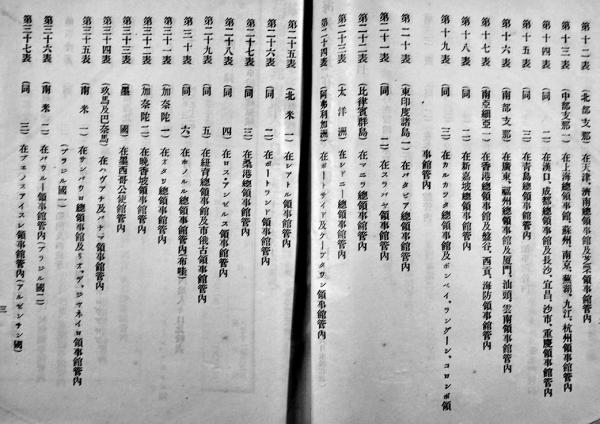 第十二表 (北部支那) 在天津濟南總領事館及芝罘領事館管內
第十三表 (中部支那一) 在上海總領事館、蘇州、南京、蕪湖、九江、杭州領事館管內
第十四表 (同 二) 在漢口、成都總領事館及長沙、宜昌、沙市、重慶領事館管內
第十五表 (同 三) 在青島總領事館管內
第十六表 (南部支那) 在廣東、福州總領事館及厦門、汕頭、雲南領事館管內
第十七表 (南亞細亞一) 在香港總領事館及盤谷、西貢、海防領事館管內
第十八表 (同 二) 在新嘉坡總領事館管內
第十九表 (同 三) 在カルカッタ總領事館及ボンベイ、ラングーン、コロンボ領
事館管內
第二十表 (東印度諸島一) 在バタビア總領事館管內
第二十一表 (同 二) 在スラバヤ領事館管內
第二十二表 (比律賓群島) 在マニラ總領事館管內
第二十三表 (太洋洲) 在シドニー總領事館管內
第二十四表 (阿弗利加洲) 在ポートサイド及ケープタウン領事館管內
第二十五表 (北米 一) 在シアトル領事館管內
第二十六表 (同 二) 在ポートランド領事館管內
第二十七表 (同 三) 在桑港總領事館管內
第二十八表 (同 四) 在ロス・アンゼルス領事館管內
第二十九表 (同 五) 在紐育總領事館及市俄古領事館管內
第三十表 (同 六) 在ホノルル總領事館管內(布哇)
第三十一表 (加奈陀一) 在オタワ總領事館管內
第三十二表 (加奈陀二) 在晩香坡領事館管內
第三十三表 (墨國) 在墨西哥公使館管內
第三十四表 (玖馬及巴奈馬) 在ハヴアナ及パナマ領事館管內
第三十五表 (南米 一) 在サンパウロ總領事館及リオ、デ、ジャネイロ領事館管內
(ブラジル國一)
第三十六表 (南米 二) 在バウルー領事館管內(ブラジル國二)
第三十七表 (同 三) 在ブエノスアイレス領事館管內(アルゼンチン國)
三